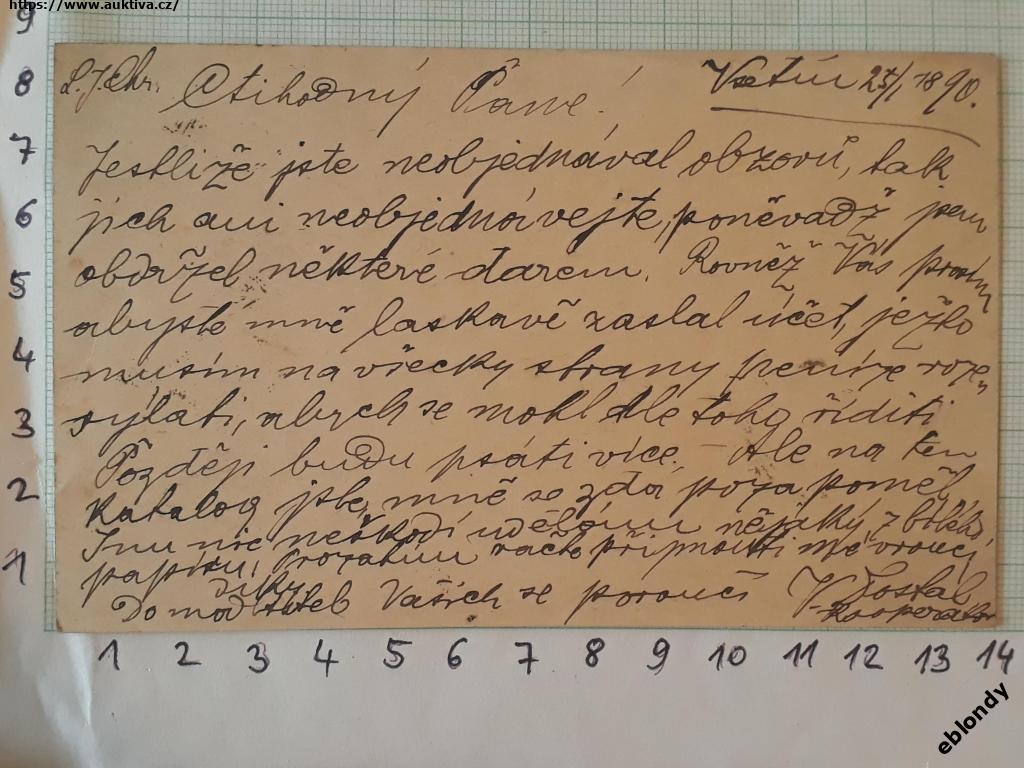 https://www.auktiva.cz/
L.J.Chr. Ctihodný Pane! Vsetín 25/1 1890.
Jestliže jste neobjednával obzorů, tak
jich ani neobjednávejte, poněvadž jsem
obdržel některé darem. Rovněž Vás prosím
abyste mně laskavě zaslal účet, ježto
musím na všecky strany peníze roze„
sýlati, abych se mohl dle toho říditi
Později budu psáti více. – Ale na ten
katalog jste mně se zdá pozapoměl.
Inu nic neškodí udělám nějaký z bílého
papíru. Prozatím račte přijmouti mé vroucí
díky
Do modliteb Vašich se poroučí V Dostal
kooperator
9
8
7
6
5
4
3
2
1
1 2 3 4 5 6 7 8 9 10 11 12 13 14
eblondy